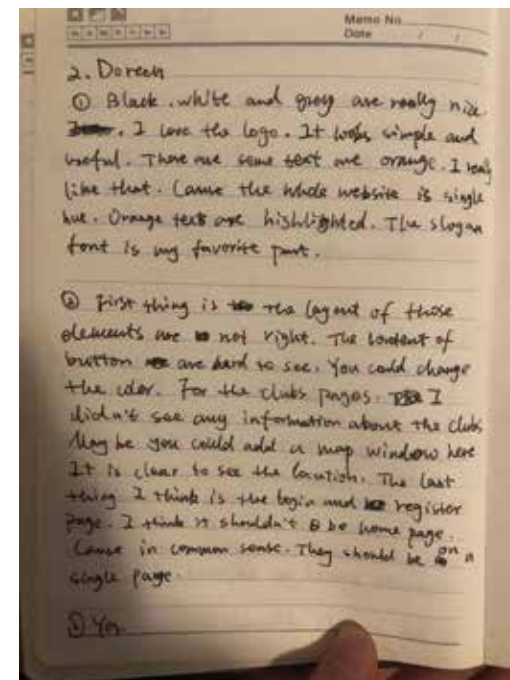 Memo No.
Date / /
2. Doreen
① Black, white and grey are really nice
. I love the logo. It looks simple and
useful. There are some text are orange. I really
like that. Cause the whole website is single
hue. Orange text are highlighted. The slogan
font is my favorite part.
② First thing is the layout of those
elements are not right. The content of
button are hard to see. You could change
the color. For the clubs pages. I
didn't see any information about the clubs
May be you could add a map window here
It is clear to see the location. The last
thing I think is the login and register
page. I think it shouldn't be home page.
Cause in common sense. They should be on a
single page.
③ Yes